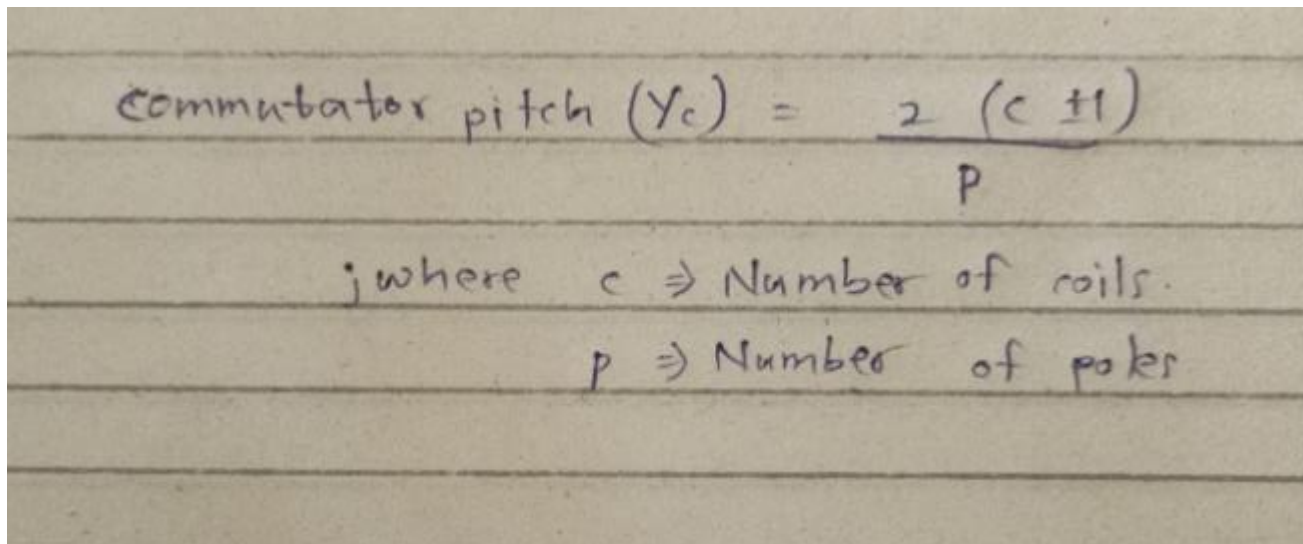 commutator pitch (Yc) = 2 (c ±1)
P
; where c ⇒ Number of coils.
p ⇒ Number of poles